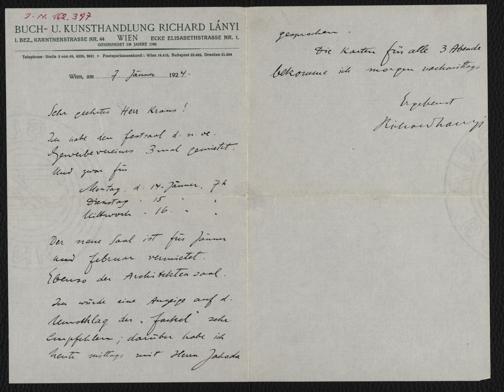 I. N. 162.397
BUCH- U. KUNSTHANDLUNG RICHARD LÁNYI
I. BEZ., KÄRNTNERSTRASSE NR. 44 WIEN ECKE ELISABETHSTRASSE NR. 1.
GEGRÜNDET IM JAHRE
Wien, am 7 Jänner 1924.
Sehr geehrter Herr Kraus!
Ich habe den Festsaal d. n. oe.
Gewerbevereines 3 mal gemietet.
Und zwar für
Montag, d. 14. Jänner, 7h
Dienstag " 15 " "
Mittwoch " 16. " "
Der neue Saal ist für Jänner
und Februar vermietet.
Ebenso der Architektensaal.
Ich würde eine Anzeige auf d.
Umschlag der "Fackel" sehr
empfehlen; darüber habe ich
heute mittags mit Herrn Jahoda
gesprochen.
Die Karten für alle 3 Abende
bekomme ich morgen nachmittags
Ergebenst
Richard Lanyi